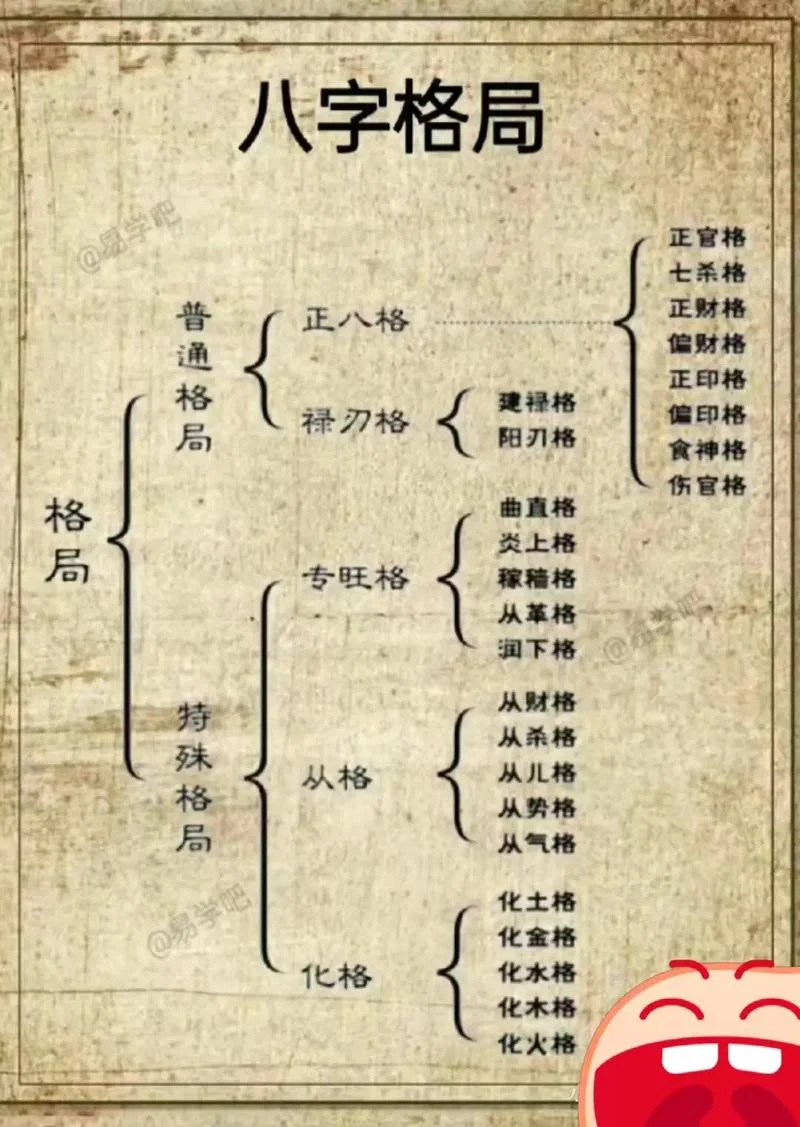 八字格局
@易学吧
格局
普通格局
正八格
正官格
七杀格
正财格
偏财格
正印格
偏印格
食神格
伤官格
禄刃格
建禄格
阳刃格
特殊格局
专旺格
曲直格
炎上格
稼穑格
从革格
润下格
@易学吧
从格
从财格
从杀格
从儿格
从势格
从气格
@易学吧
化格
化土格
化金格
化水格
化木格
化火格